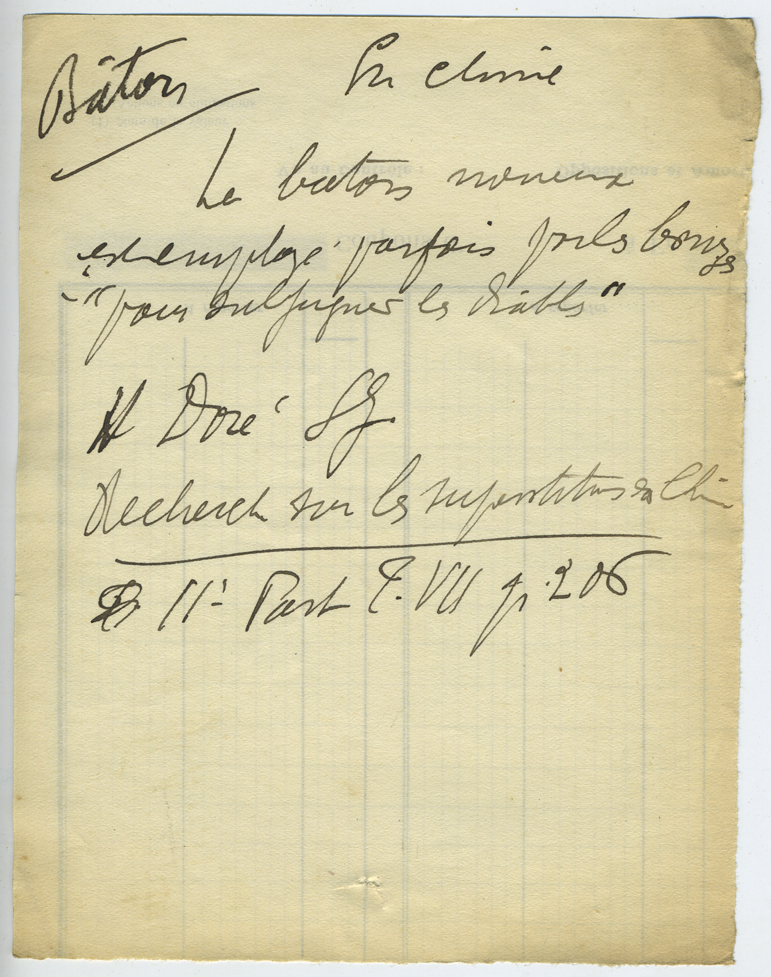 Bâton En Chine
Le baton noueux
est employé parfois par les bonzes
"pour subjuguer les diables"
H Doré SJ
Recherches sur les superstitions en Chine
IIe Part T. VII p. 206